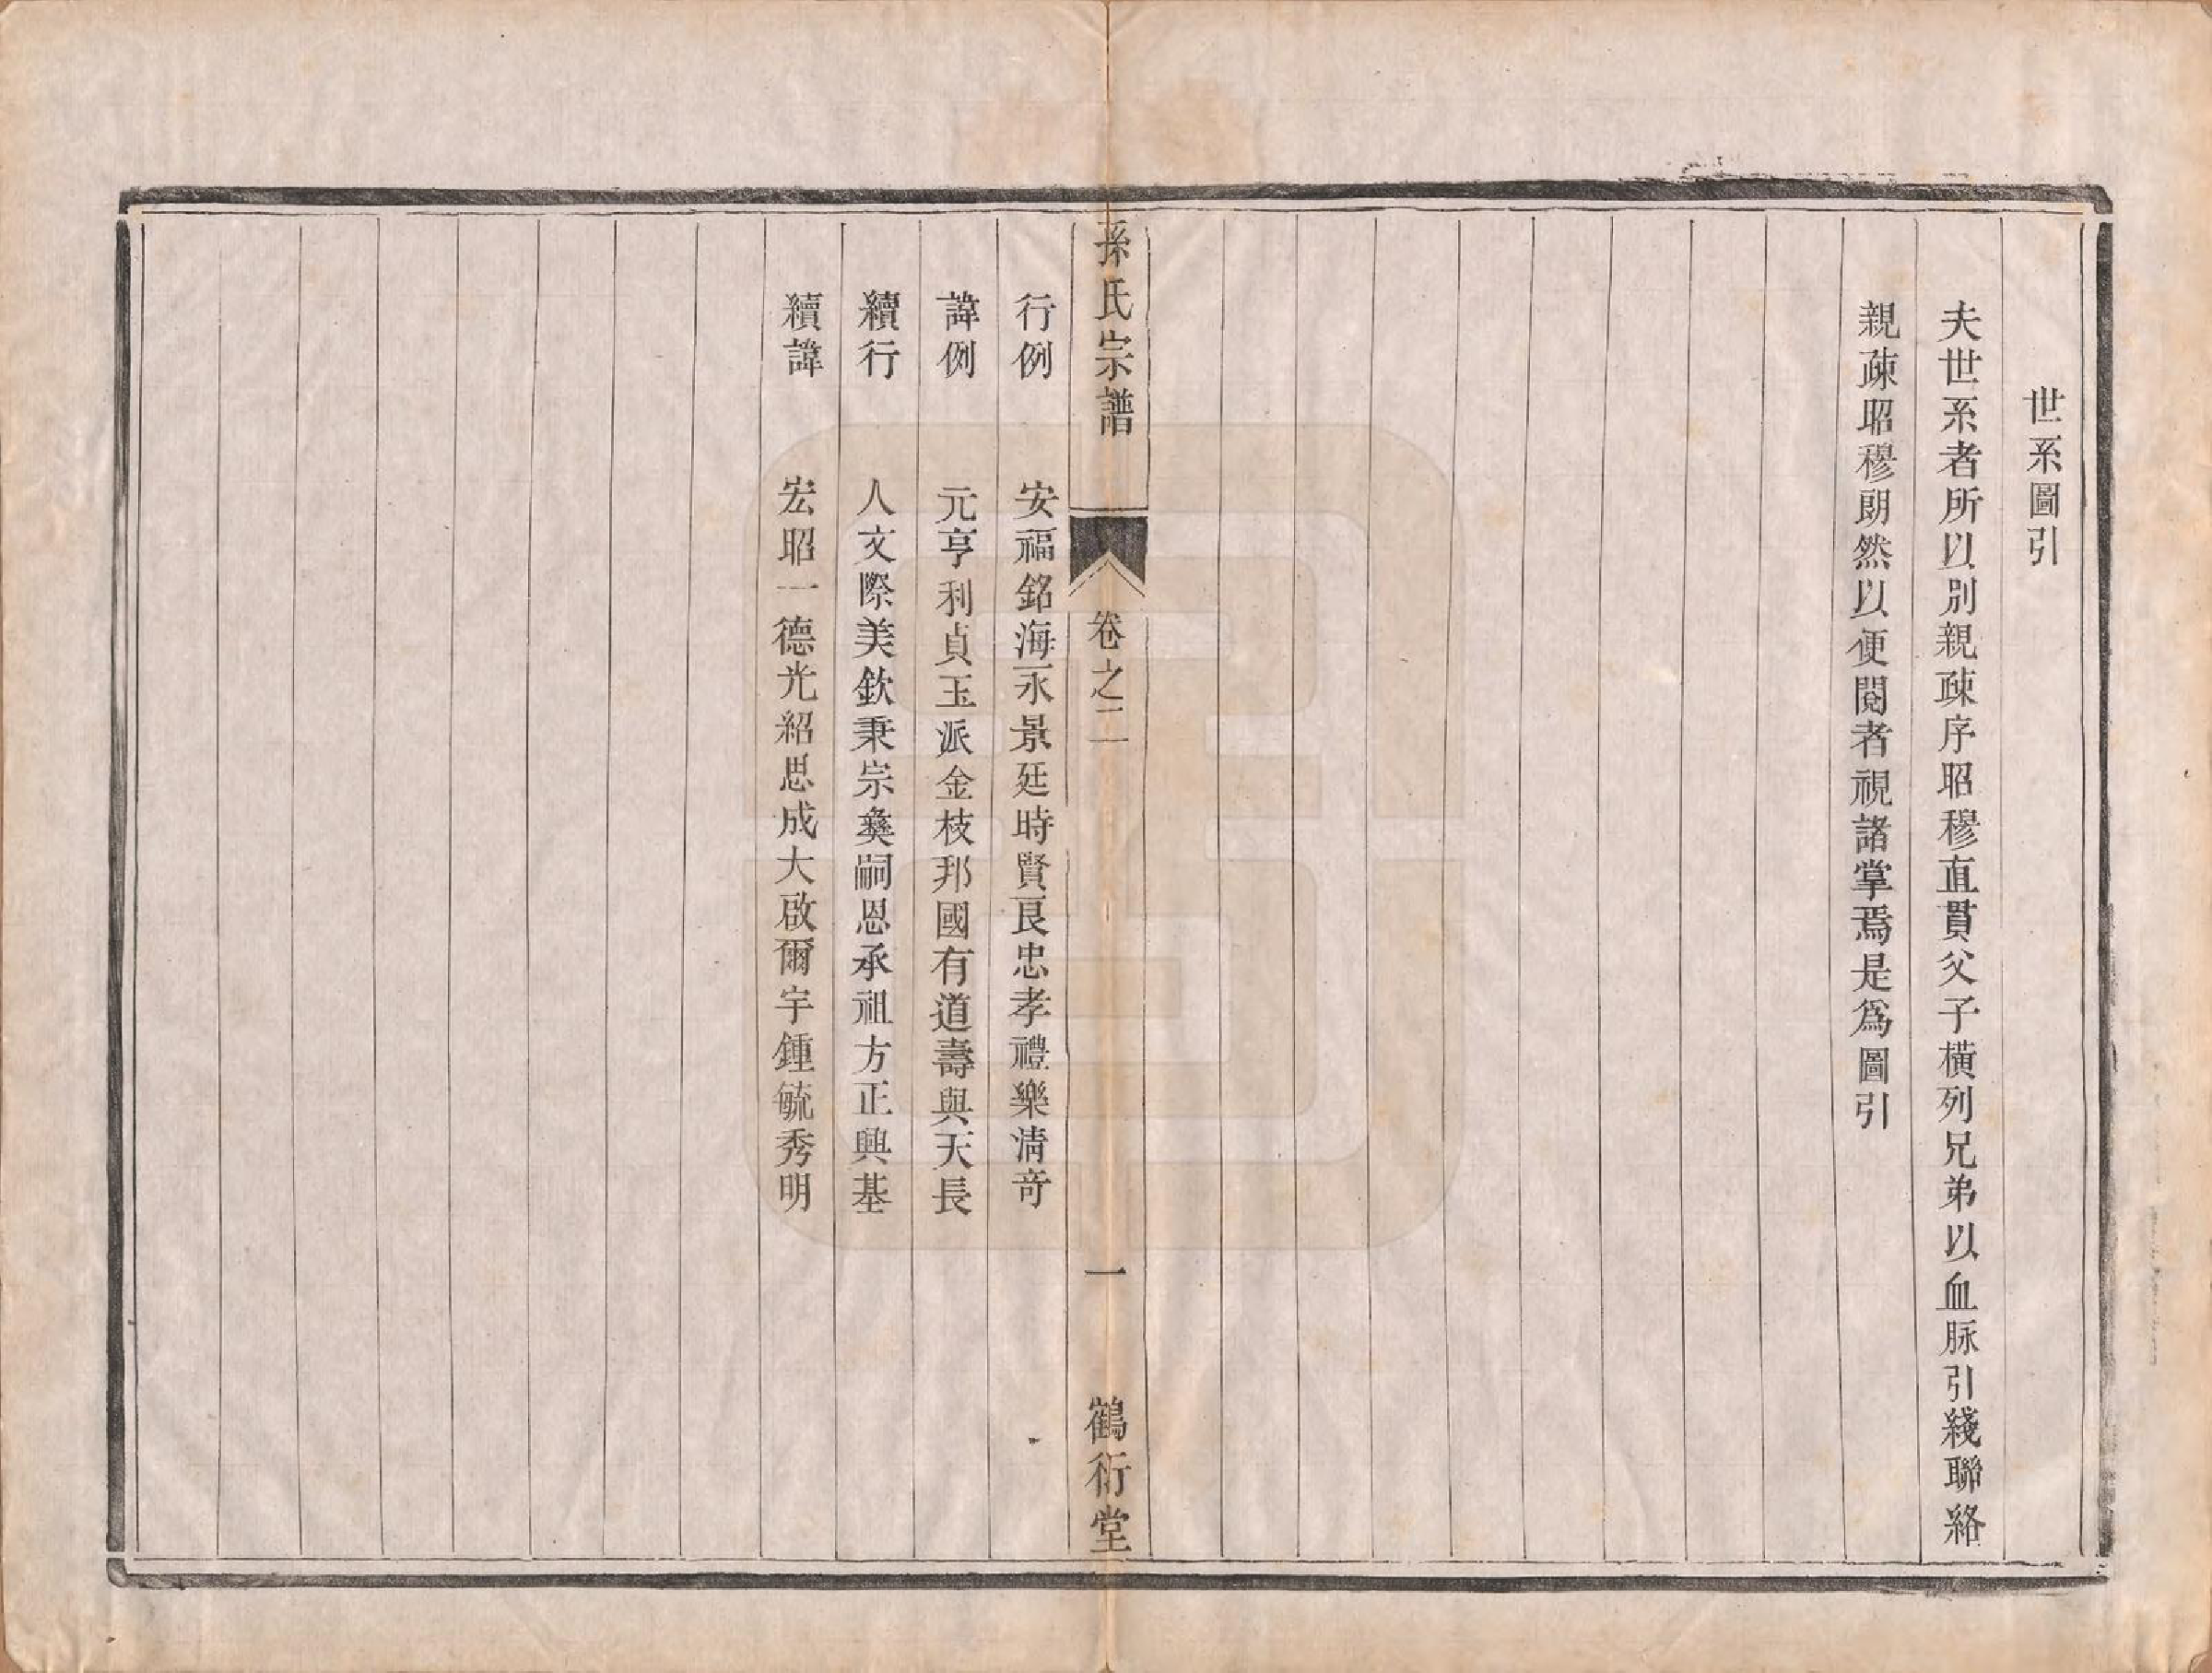 世系圖引
夫世系者所以別親疎序昭穆直貫父子橫列兄弟以血脉引綫聯絡
親疎昭穆朗然以便閱者視諸掌焉是爲圖引
孫氏宗譜 卷之二 一 鶴衍堂
行例 安福銘海永景廷時賢良忠孝禮樂淸奇
諱例 元亨利貞玉派金枝邦國有道壽與天長
續行 人文際美欽秉宗彝嗣恩承祖方正興基
續諱 宏昭一德光紹思成大啟爾宇鍾毓秀明